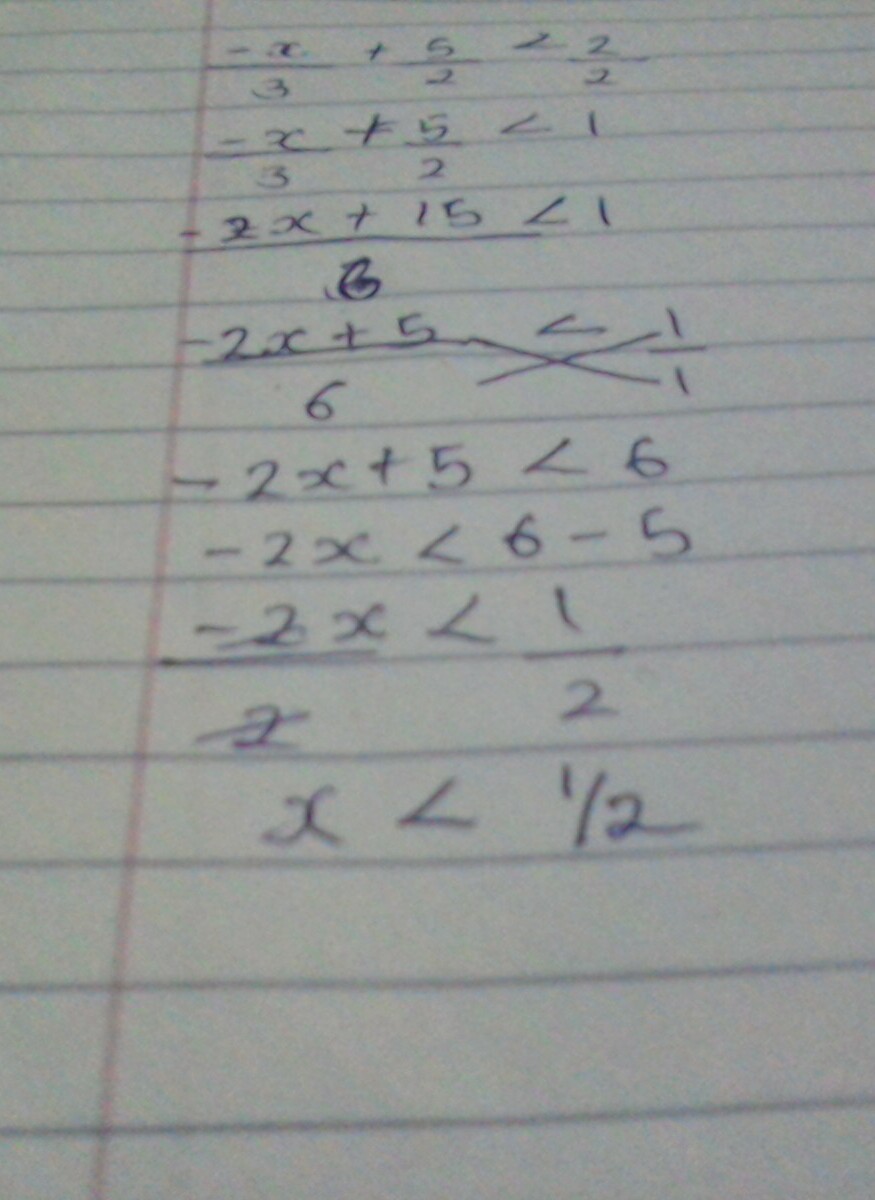 -x/3 + 5/2 < 2/2
-x/3 + 5/2 < 1
-2x + 15 < 1
6
-2x + 5 < 1
6 1
-2x + 5 < 6
-2x < 6 - 5
-2x < 1
2 2
x < 1/2